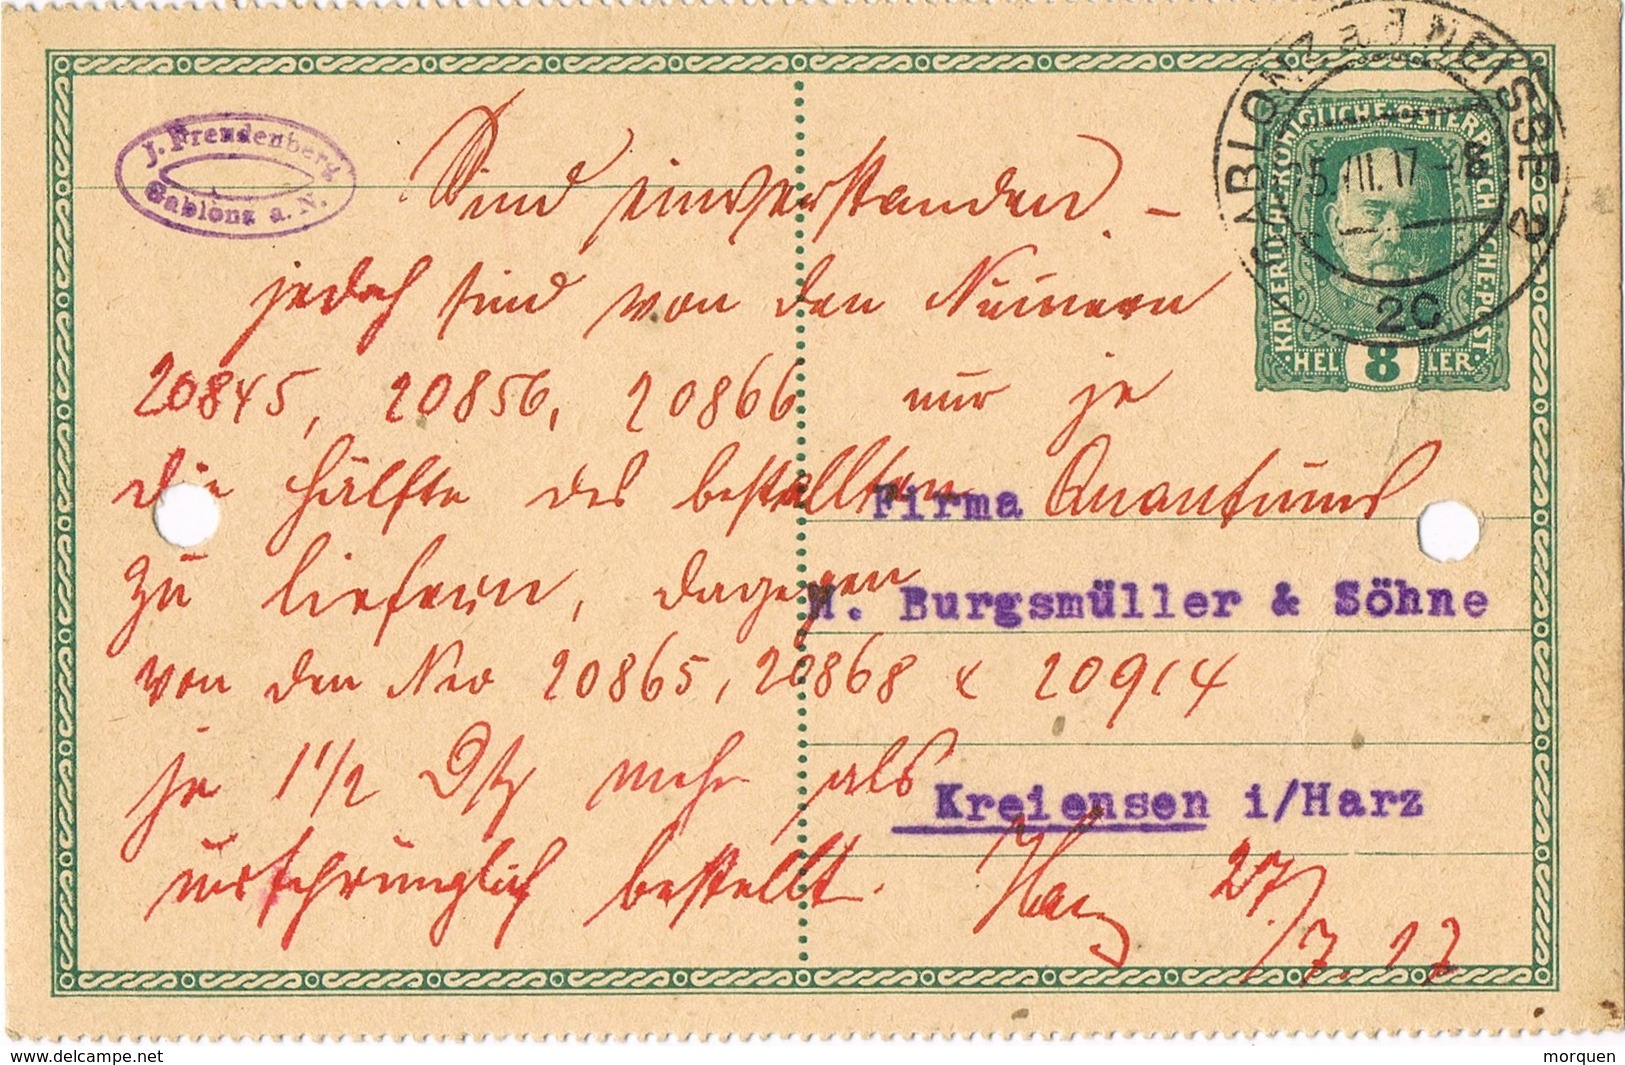 J. Freudenberg
Gablonz a. N.
GABLONZ a. d. NEISSE 2
25. VII. 17 - 8
2c
KAISERLICHE KÖNIGLICHE ÖSTERREICHISCHE POST
HEL 8 LER
Sind einverstanden –
jedoch sind von den Numern
20845, 20856, 20866 nur je
die Hälfte des bestellten Quantums
zu liefern, dagegen
von den Nro 20865, 20868 & 20914
je 1 1/2 Dtz mehr als
ursprünglich bestellt.
27/7. 17
Firma
M. Burgsmüller & Söhne
Kreiensen i/Harz
www.delcampe.net
morquen